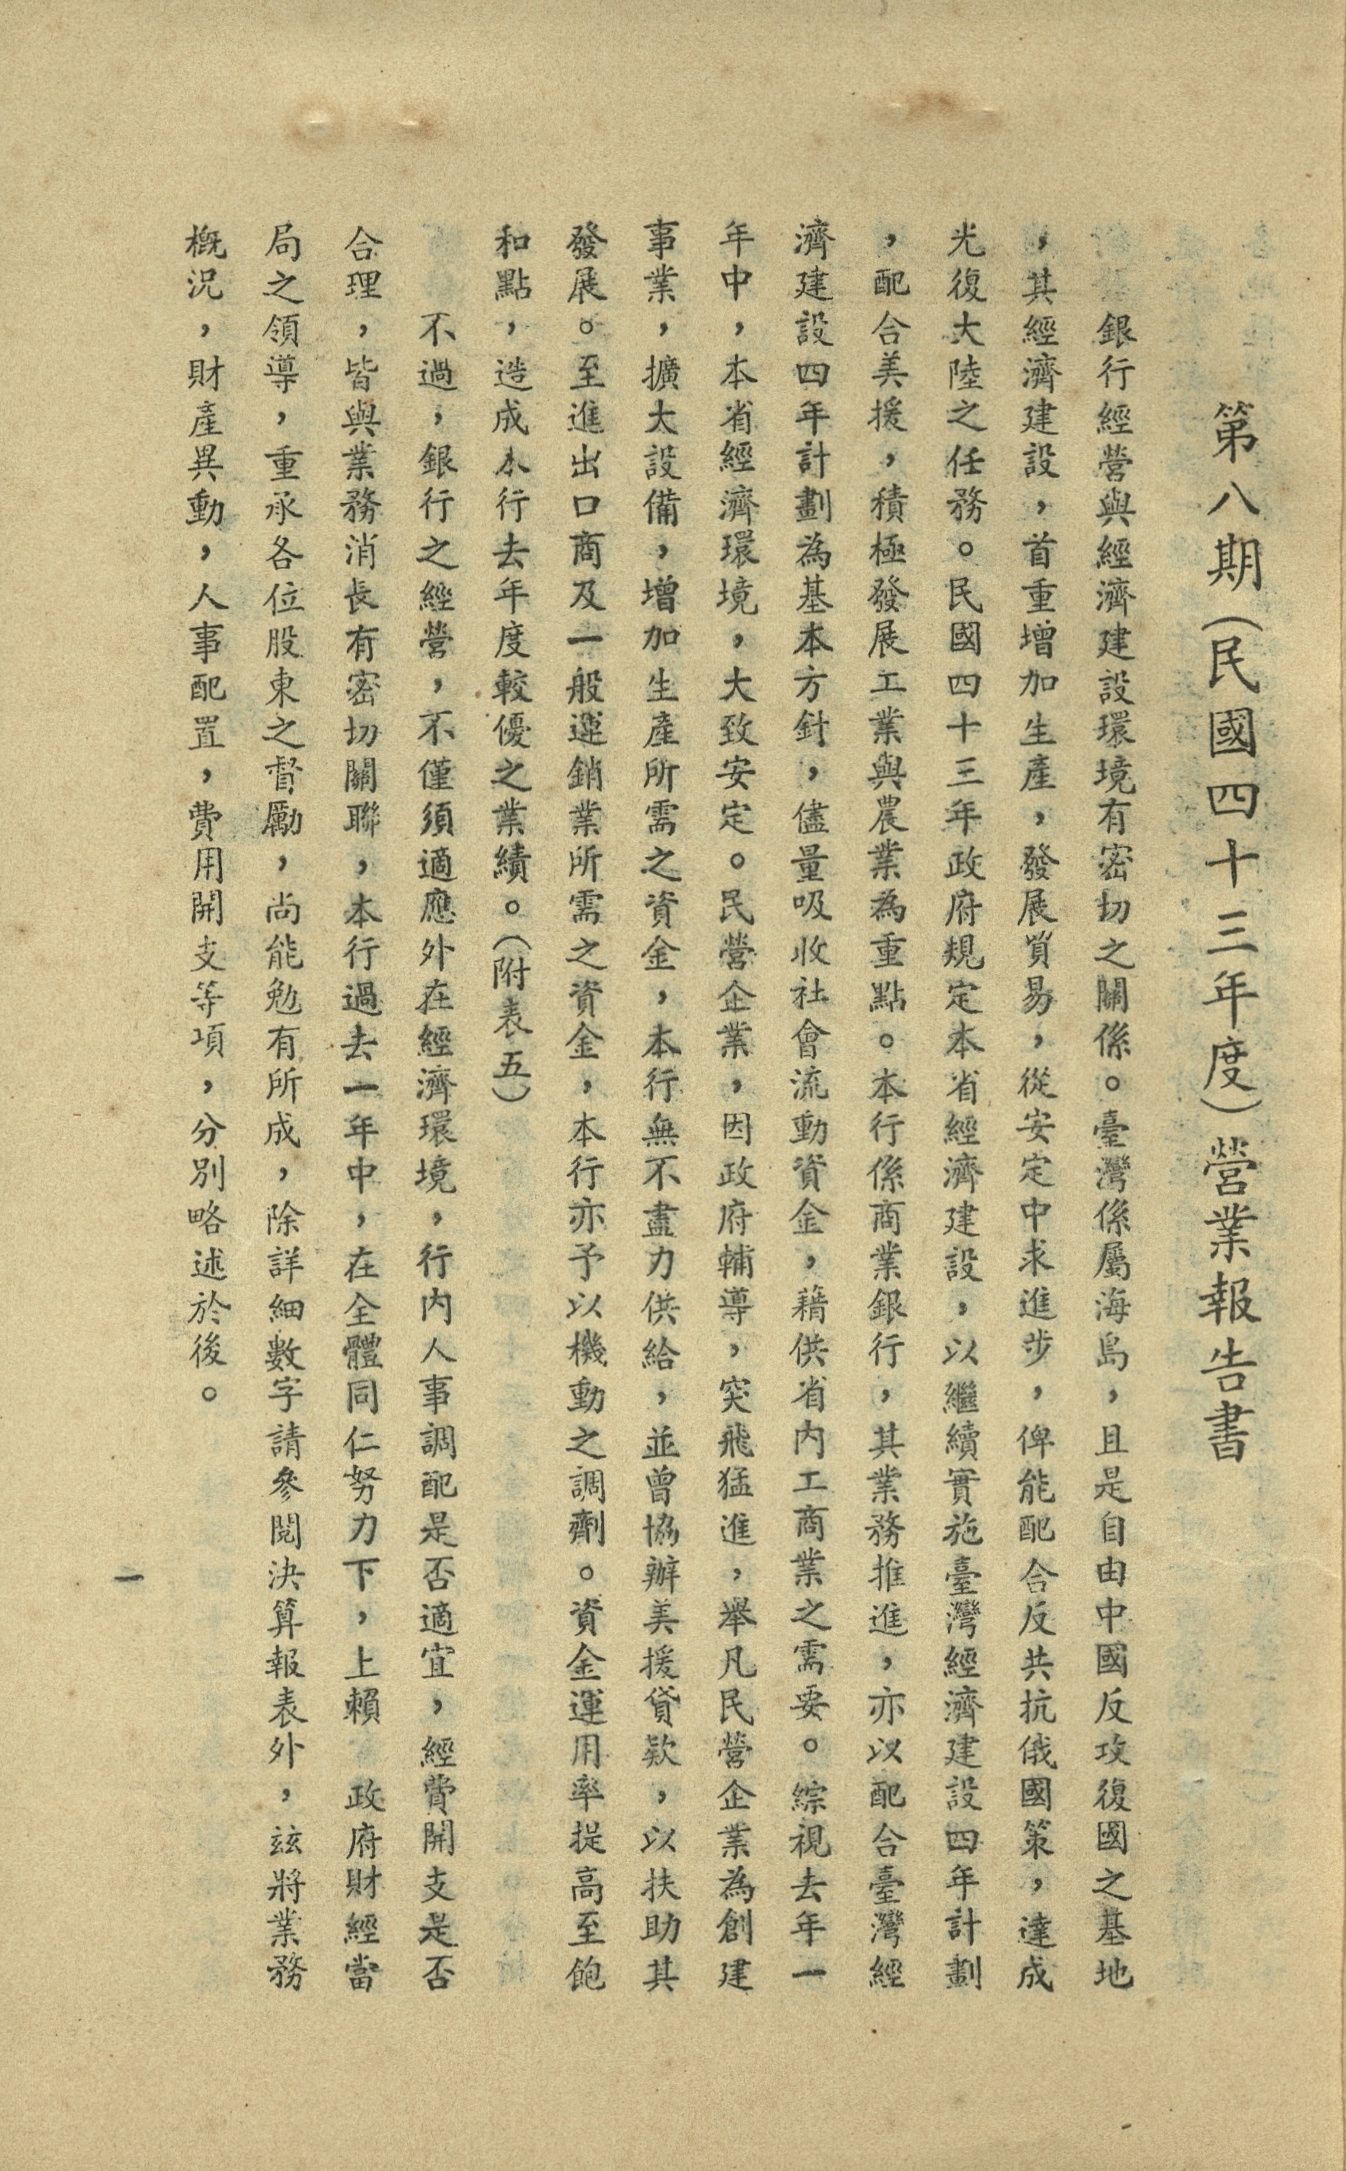 第八期(民國四十三年度)營業報告書
銀行經營與經濟建設環境有密切之關係。臺灣係屬海島,且是自由中國反攻復國之基地
,其經濟建設,首重增加生產,發展貿易,從安定中求進步,俾能配合反共抗俄國策,達成
光復大陸之任務。民國四十三年政府規定本省經濟建設,以繼續實施臺灣經濟建設四年計劃
,配合美援,積極發展工業與農業為重點。本行係商業銀行,其業務推進,亦以配合臺灣經
濟建設四年計劃為基本方針,儘量吸收社會流動資金,藉供省內工商業之需要。綜視去年一
年中,本省經濟環境,大致安定。民營企業,因政府輔導,突飛猛進,舉凡民營企業為創建
事業,擴大設備,增加生產所需之資金,本行無不盡力供給,並曾協辦美援貸款,以扶助其
發展。至進出口商及一般運銷業所需之資金,本行亦予以機動之調劑。資金運用率提高至飽
和點,造成本行去年度較優之業績。(附表五)
不過,銀行之經營,不僅須適應外在經濟環境,行內人事調配是否適宜,經費開支是否
合理,皆與業務消長有密切關聯,本行過去一年中,在全體同仁努力下,上賴 政府財經當
局之領導,重承各位股東之督勵,尚能勉有所成,除詳細數字請參閱決算報表外,茲將業務
概況,財產異動,人事配置,費用開支等項,分別略述於後。
一